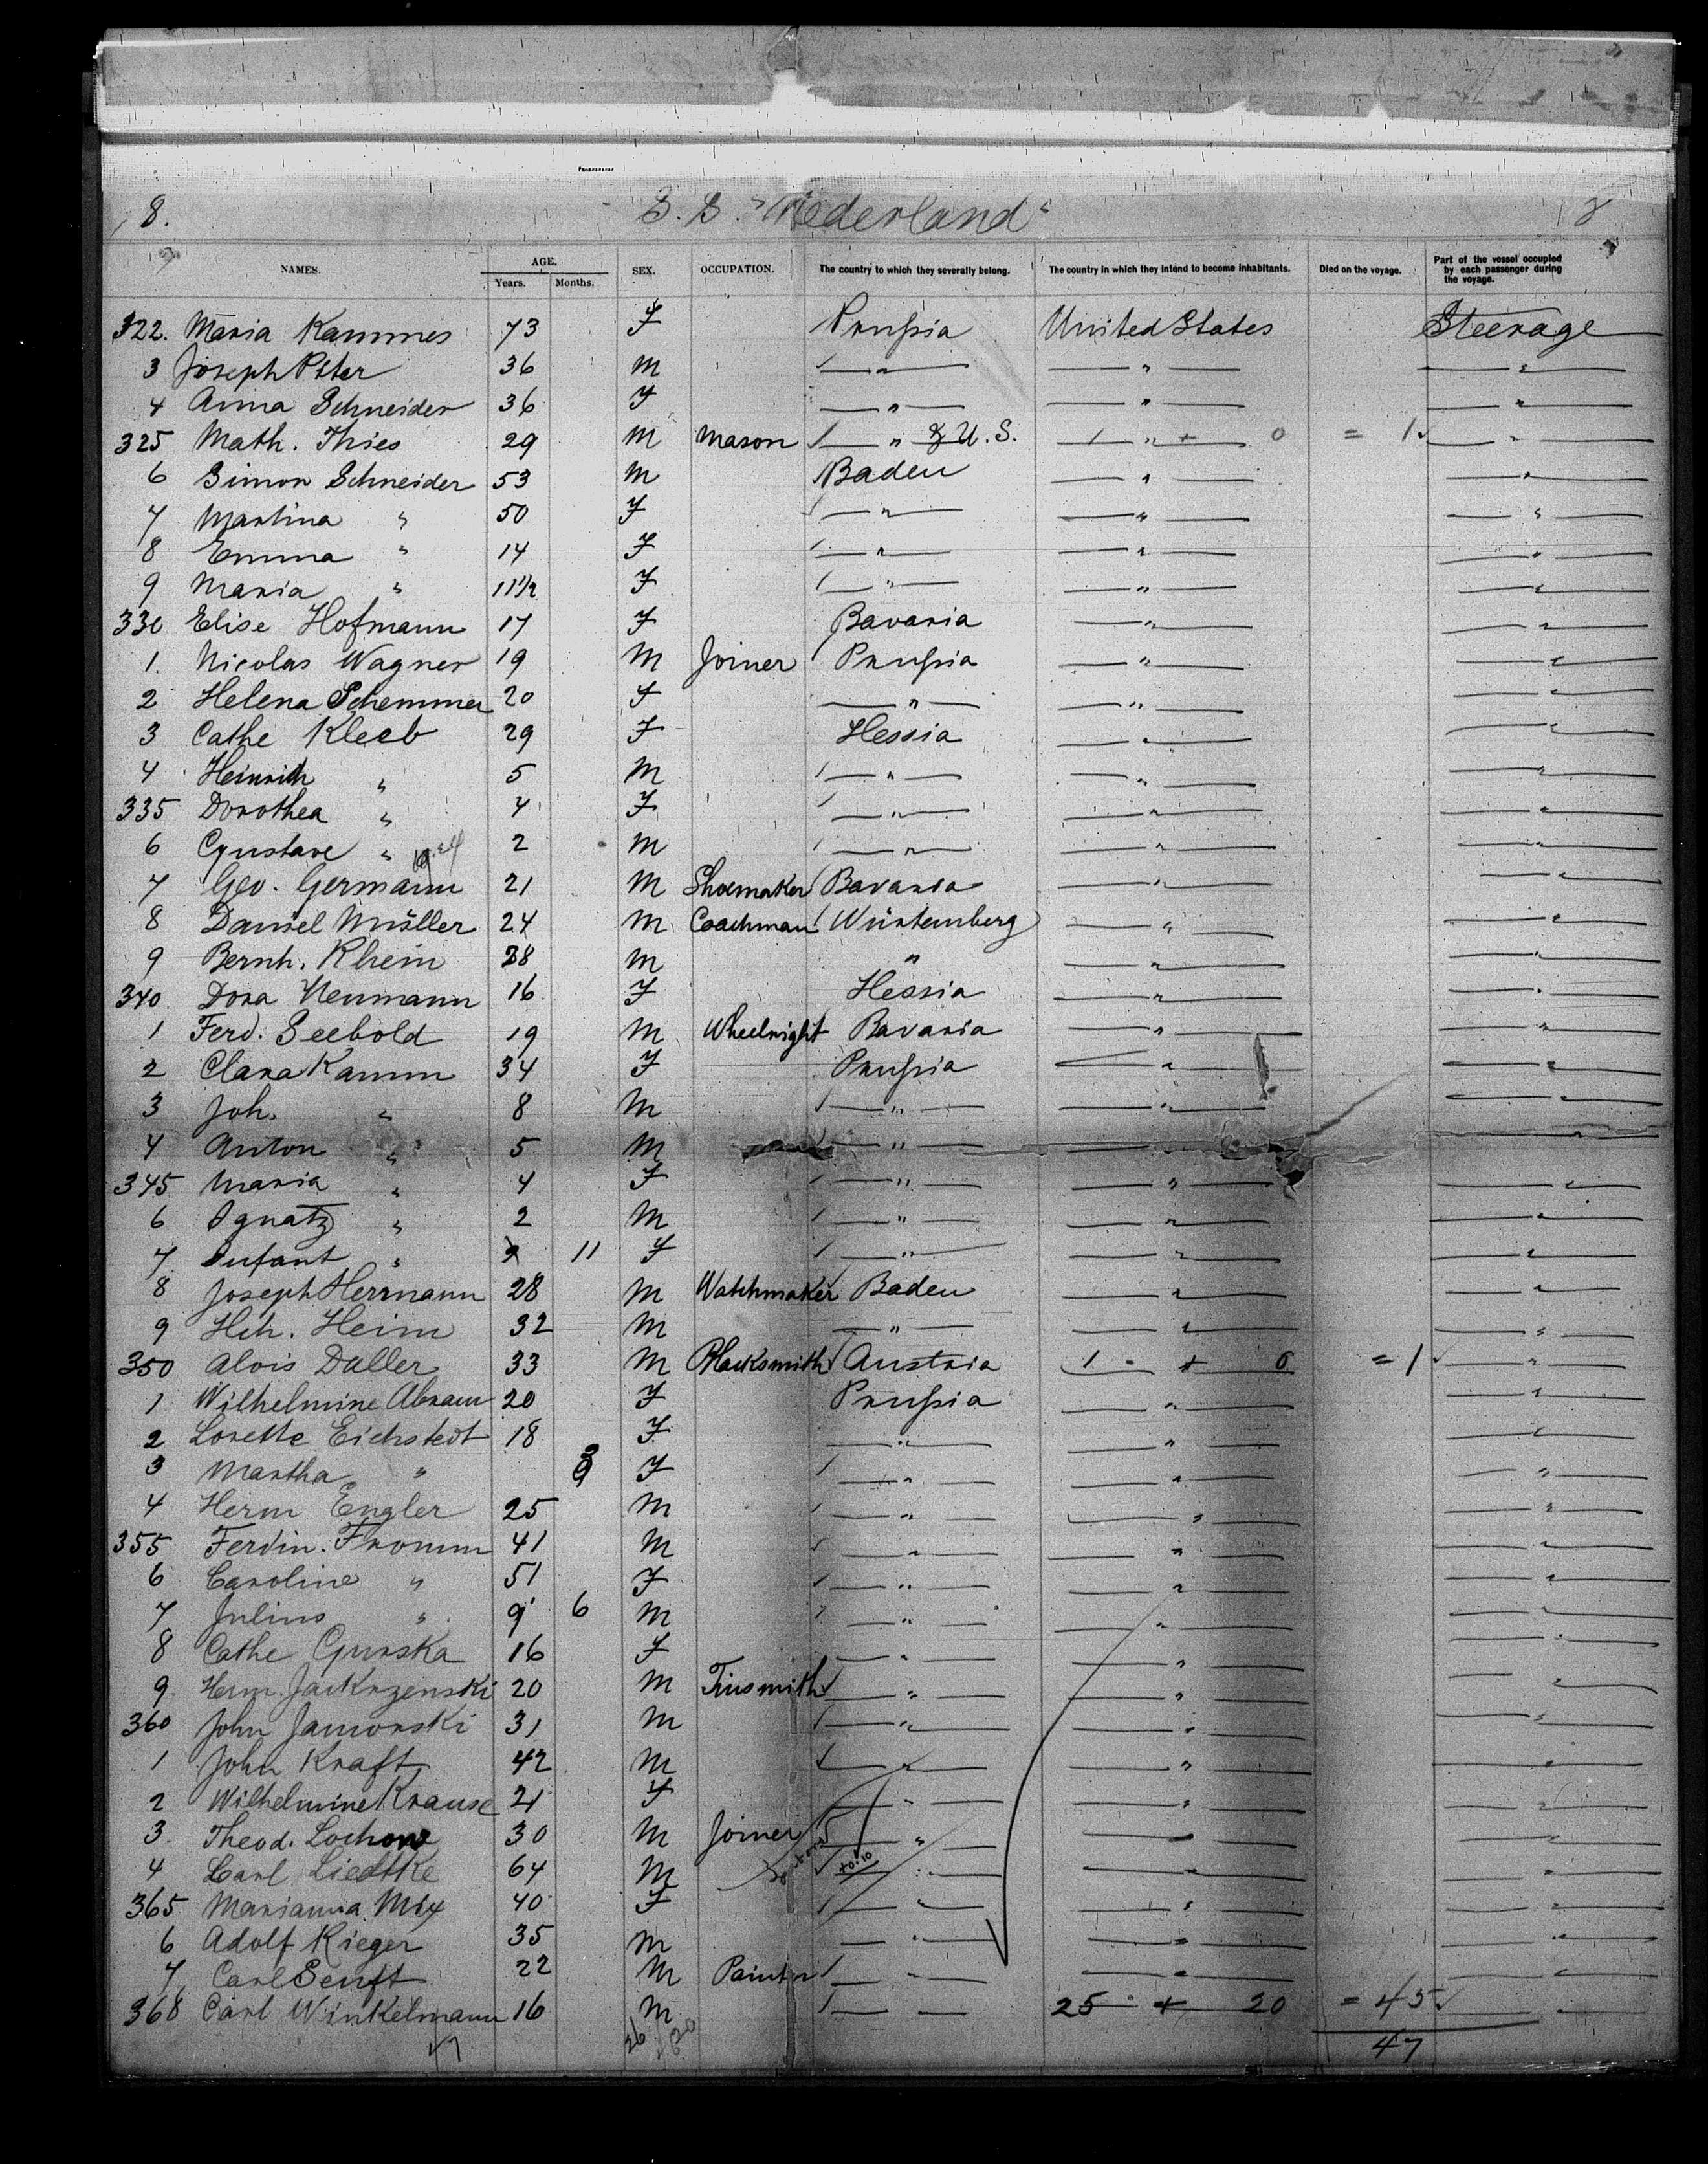 8. S. S. "Nederland" 8
NAMES. AGE. Years. Months. SEX. OCCUPATION. The country to which they severally belong. The country in which they intend to become inhabitants. Died on the voyage. Part of the vessel occupied by each passenger during the voyage.
322. Maria Kammes 73 F Prußia United States Steerage
3 Joseph Peter 36 M " " "
4 Anna Schneider 36 F " " "
325 Math. Thies 29 M Mason " & U. S. 1 " + 0 = 1 "
6 Simon Schneider 53 M Baden " "
7 Martina " 50 F " " "
8 Emma " 14 F " " "
9 Maria " 11 1/2 F " " "
330 Elise Hofmann 17 F Bavaria " "
1. Nicolas Wagner 19 M Joiner Prußia " "
2 Helena Schemmer 20 F " " "
3 Cathe Kleeb 29 F Hessia " "
4 Heinrich " 5 M " " "
335 Dorothea " 4 F " " "
6 Gustave " 2 M " " "
7 Geo. Germann 21 M Shoemaker Bavaria " "
8 Daniel Müller 24 M Coachman Würtemberg " "
9 Bernh. Rhein 28 M " " "
340 Dora Neumann 16 F Hessia " "
1 Ferd. Seebold 19 M Wheelright Bavaria " "
2 Clara Kamm 34 F Prußia " "
3 Joh. " 8 M " " "
4 Anton " 5 M " " "
345 Maria " 4 F " " "
6 Ignatz " 2 M " " "
7 Infant " 11 F " " "
8 Joseph Herrmann 28 M Watchmaker Baden " "
9 Hch. Heim 32 M " " "
350 Alois Daller 33 M Blacksmith Austria 1 " + 0 = 1 "
1 Wilhelmine Abram 20 F Prußia " "
2 Lorette Eichstedt 18 F " " "
3 Martha " F " " "
4 Herm Engler 25 M " " "
355 Ferdin. Fromm 41 M " " "
6 Caroline " 51 F " " "
7 Julius " 9 6 M " " "
8 Cathe Gurska 16 F " " "
9 Herm. Jackrzenski 20 M Tinsmith " " "
360 John Jaworski 31 M " " "
1 John Kraft 42 M " " "
2 Wilhelmine Krause 21 F " " "
3 Theod. Lochow 30 M Joiner " " "
4 Carl Liedtke 64 M " " "
365 Marianna Mix 40 F " " "
6 Adolf Rieger 35 M " " "
7 Carl Senft 22 M Painter " " "
368 Carl Winkelmann 16 M " 25 + 20 = 45 "
47 26 20 47